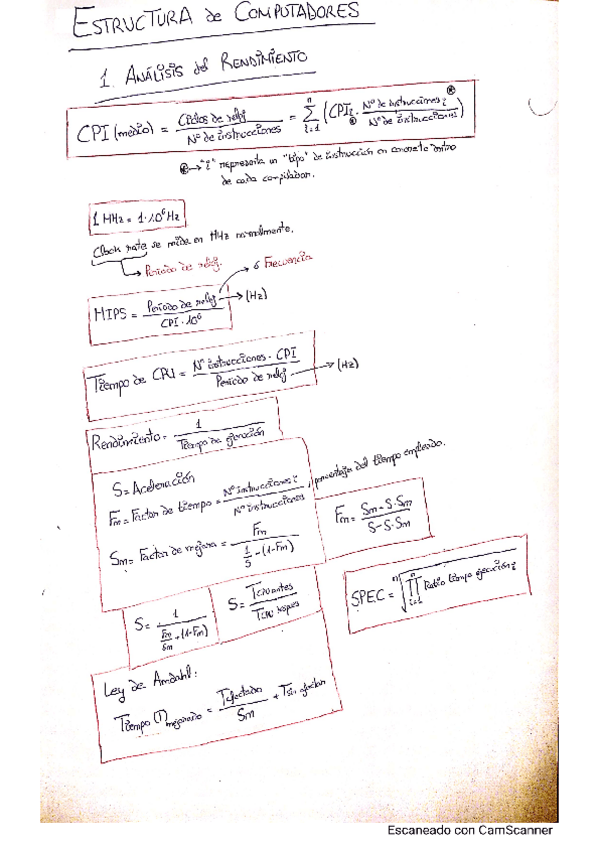 ESTRUCTURA de COMPUTADORES
1. ANÁLISIS del RENDIMIENTO
CPI (medio) = Ciclos de reloj / Nº de instrucciones = Σ i=1 n (CPIi · Nº de instrucciones i / Nº de instrucciones)
⊛→ "i" representa un "tipo" de instrucción en concreto dentro
de cada compilador.
1 MHz = 1·10⁶ Hz
Clock rate se mide en MHz normalmente.
Periodo de reloj.
ó Frecuencia
MIPS = Periodo de reloj / CPI · 10⁶ → (Hz)
Tiempo de CPU = Nº instrucciones · CPI / Periodo de reloj → (Hz)
Rendimiento = 1 / Tiempo de ejecución
S = Aceleración
Fm = Factor de tiempo = Nº instrucciones i / Nº instrucciones, porcentaje del tiempo empleado.
Sm = Factor de mejora = Fm / 1/S - (1-Fm)
Fm = Sm - S·Sm / S - S·Sm
S = 1 / Fm/Sm + (1-Fm)
S = TCPU antes / TCPU
SPEC = n√ ∏ i=1 n Ratio tiempo ejecución i
Ley de Amdahl:
Tiempo (T) mejorado = Tafectado / Sm + Tsin afectar
Escaneado con CamScanner